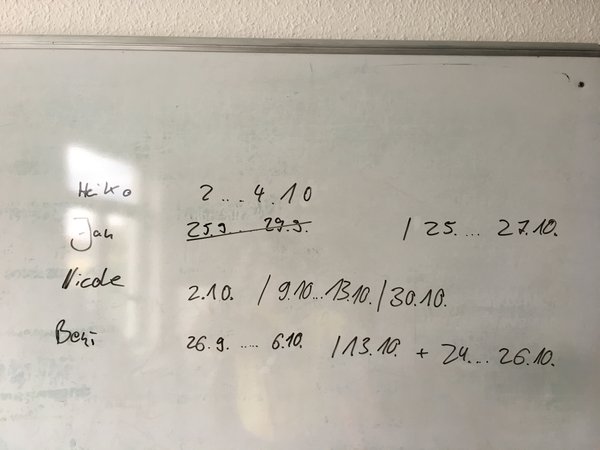 Heiko 2 ... 4.10
Jan 25.9. ... 29.9. / 25. ... 27.10.
Nicole 2.10. / 9.10...13.10. / 30.10.
Beni 26.9. ..... 6.10. / 13.10. + 24.... 26.10.